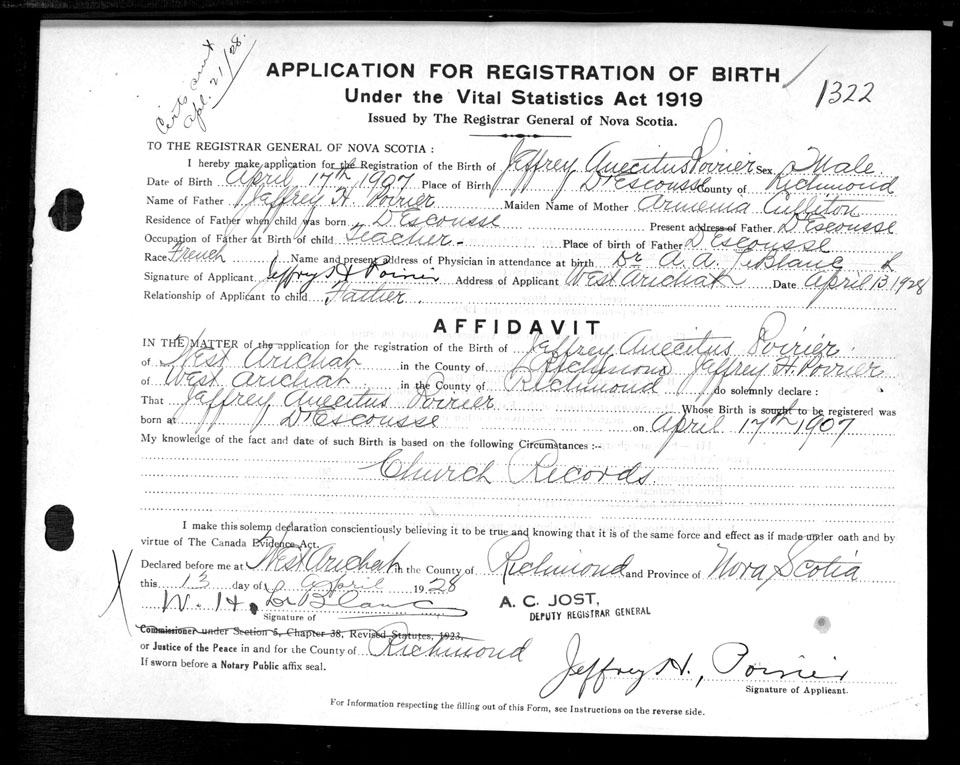 Certs sent
Apl. 21/28.
APPLICATION FOR REGISTRATION OF BIRTH
1322
Under the Vital Statistics Act 1919
Issued by The Registrar General of Nova Scotia.
TO THE REGISTRAR GENERAL OF NOVA SCOTIA :
I hereby make application for the Registration of the Birth of Jeffrey Anecitus Poirier Sex Male
Date of Birth April 17th 1907 Place of Birth D'Escousse County of Richmond
Name of Father Jeffrey H. Poirier Maiden Name of Mother Armenia Culliton
Residence of Father when child was born D'Escousse Present address of Father D'Escousse
Occupation of Father at Birth of child Teacher - Place of birth of Father D'Escousse
Race French Name and present address of Physician in attendance at birth Dr A. A. LeBlanc
Signature of Applicant Jeffrey H Poirier Address of Applicant West Arichat Date April 13 1928
Relationship of Applicant to child Father.
AFFIDAVIT
IN THE MATTER of the application for the registration of the Birth of Jeffrey Anecitus Poirier
of West Arichat in the County of Richmond Jeffrey H. Poirier
of West Arichat in the County of Richmond do solemnly declare :
That Jeffrey Anecitus Poirier Whose Birth is sought to be registered was
born at D'Escousse on April 17th 1907
My knowledge of the fact and date of such Birth is based on the following Circumstances :-
Church Records.
I make this solemn declaration conscientiously believing it to be true and knowing that it is of the same force and effect as if made under oath and by
virtue of The Canada Evidence Act.
Declared before me at West Arichat in the County of Richmond and Province of Nova Scotia
this 13 day of April 1928
W. H. LeBlanc
A. C. JOST,
DEPUTY REGISTRAR GENERAL
Signature of
Commissioner under Section 5, Chapter 38, Revised Statutes, 1923,
or Justice of the Peace in and for the County of Richmond
If sworn before a Notary Public affix seal.
Jeffrey H., Poirier
Signature of Applicant.
For Information respecting the filling out of this Form, see Instructions on the reverse side.